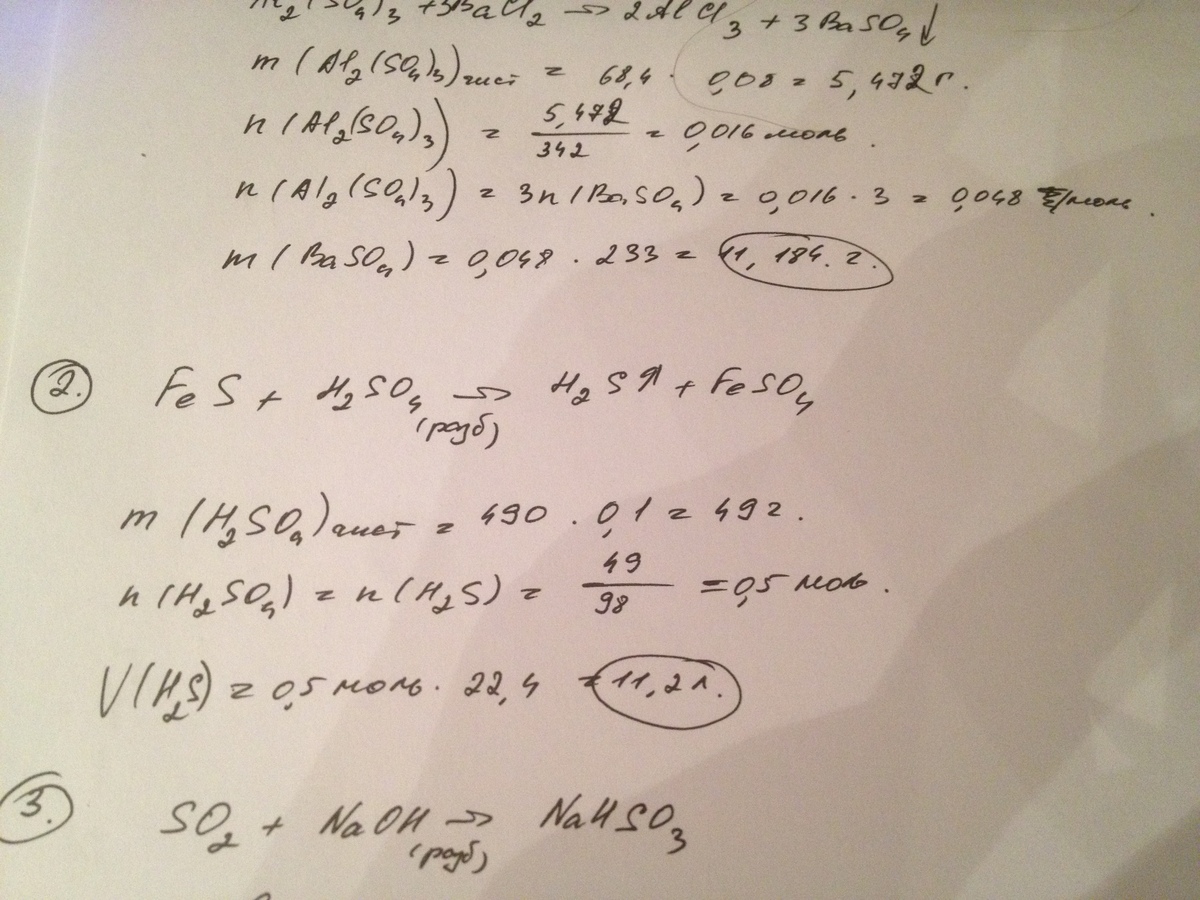 Al₂(SO₄)₃ + 3BaCl₂ → 2AlCl₃ + 3BaSO₄↓
m(Al₂(SO₄)₃)чист = 68,4 · 0,08 = 5,472 г.
n(Al₂(SO₄)₃) = 5,472/342 = 0,016 моль.
n(Al₂(SO₄)₃) = 3n(BaSO₄) = 0,016 · 3 = 0,048 моль.
m(BaSO₄) = 0,048 · 233 = 11,184 г.
2. FeS + H₂SO₄ → H₂S↑ + FeSO₄
(разб)
m(H₂SO₄)чист = 490 · 0,1 = 49 г.
n(H₂SO₄) = n(H₂S) = 49/98 = 0,5 моль.
V(H₂S) = 0,5 моль · 22,4 = 11,2 л.
3. SO₂ + NaOH → NaHSO₃
(разб)